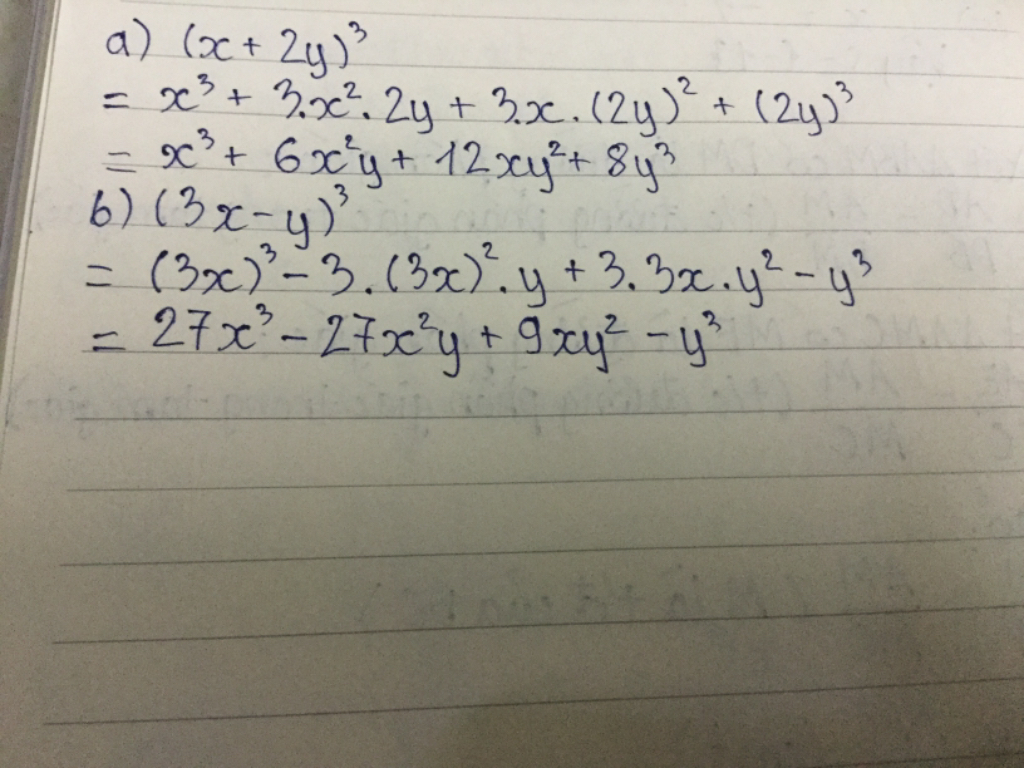 a) (x + 2y)³
= x³ + 3.x². 2y + 3.x. (2y)² + (2y)³
= x³ + 6x²y + 12xy² + 8y³
b) (3x - y)³
= (3x)³ - 3. (3x)². y + 3. 3x. y² - y³
= 27x³ - 27x²y + 9xy² - y³